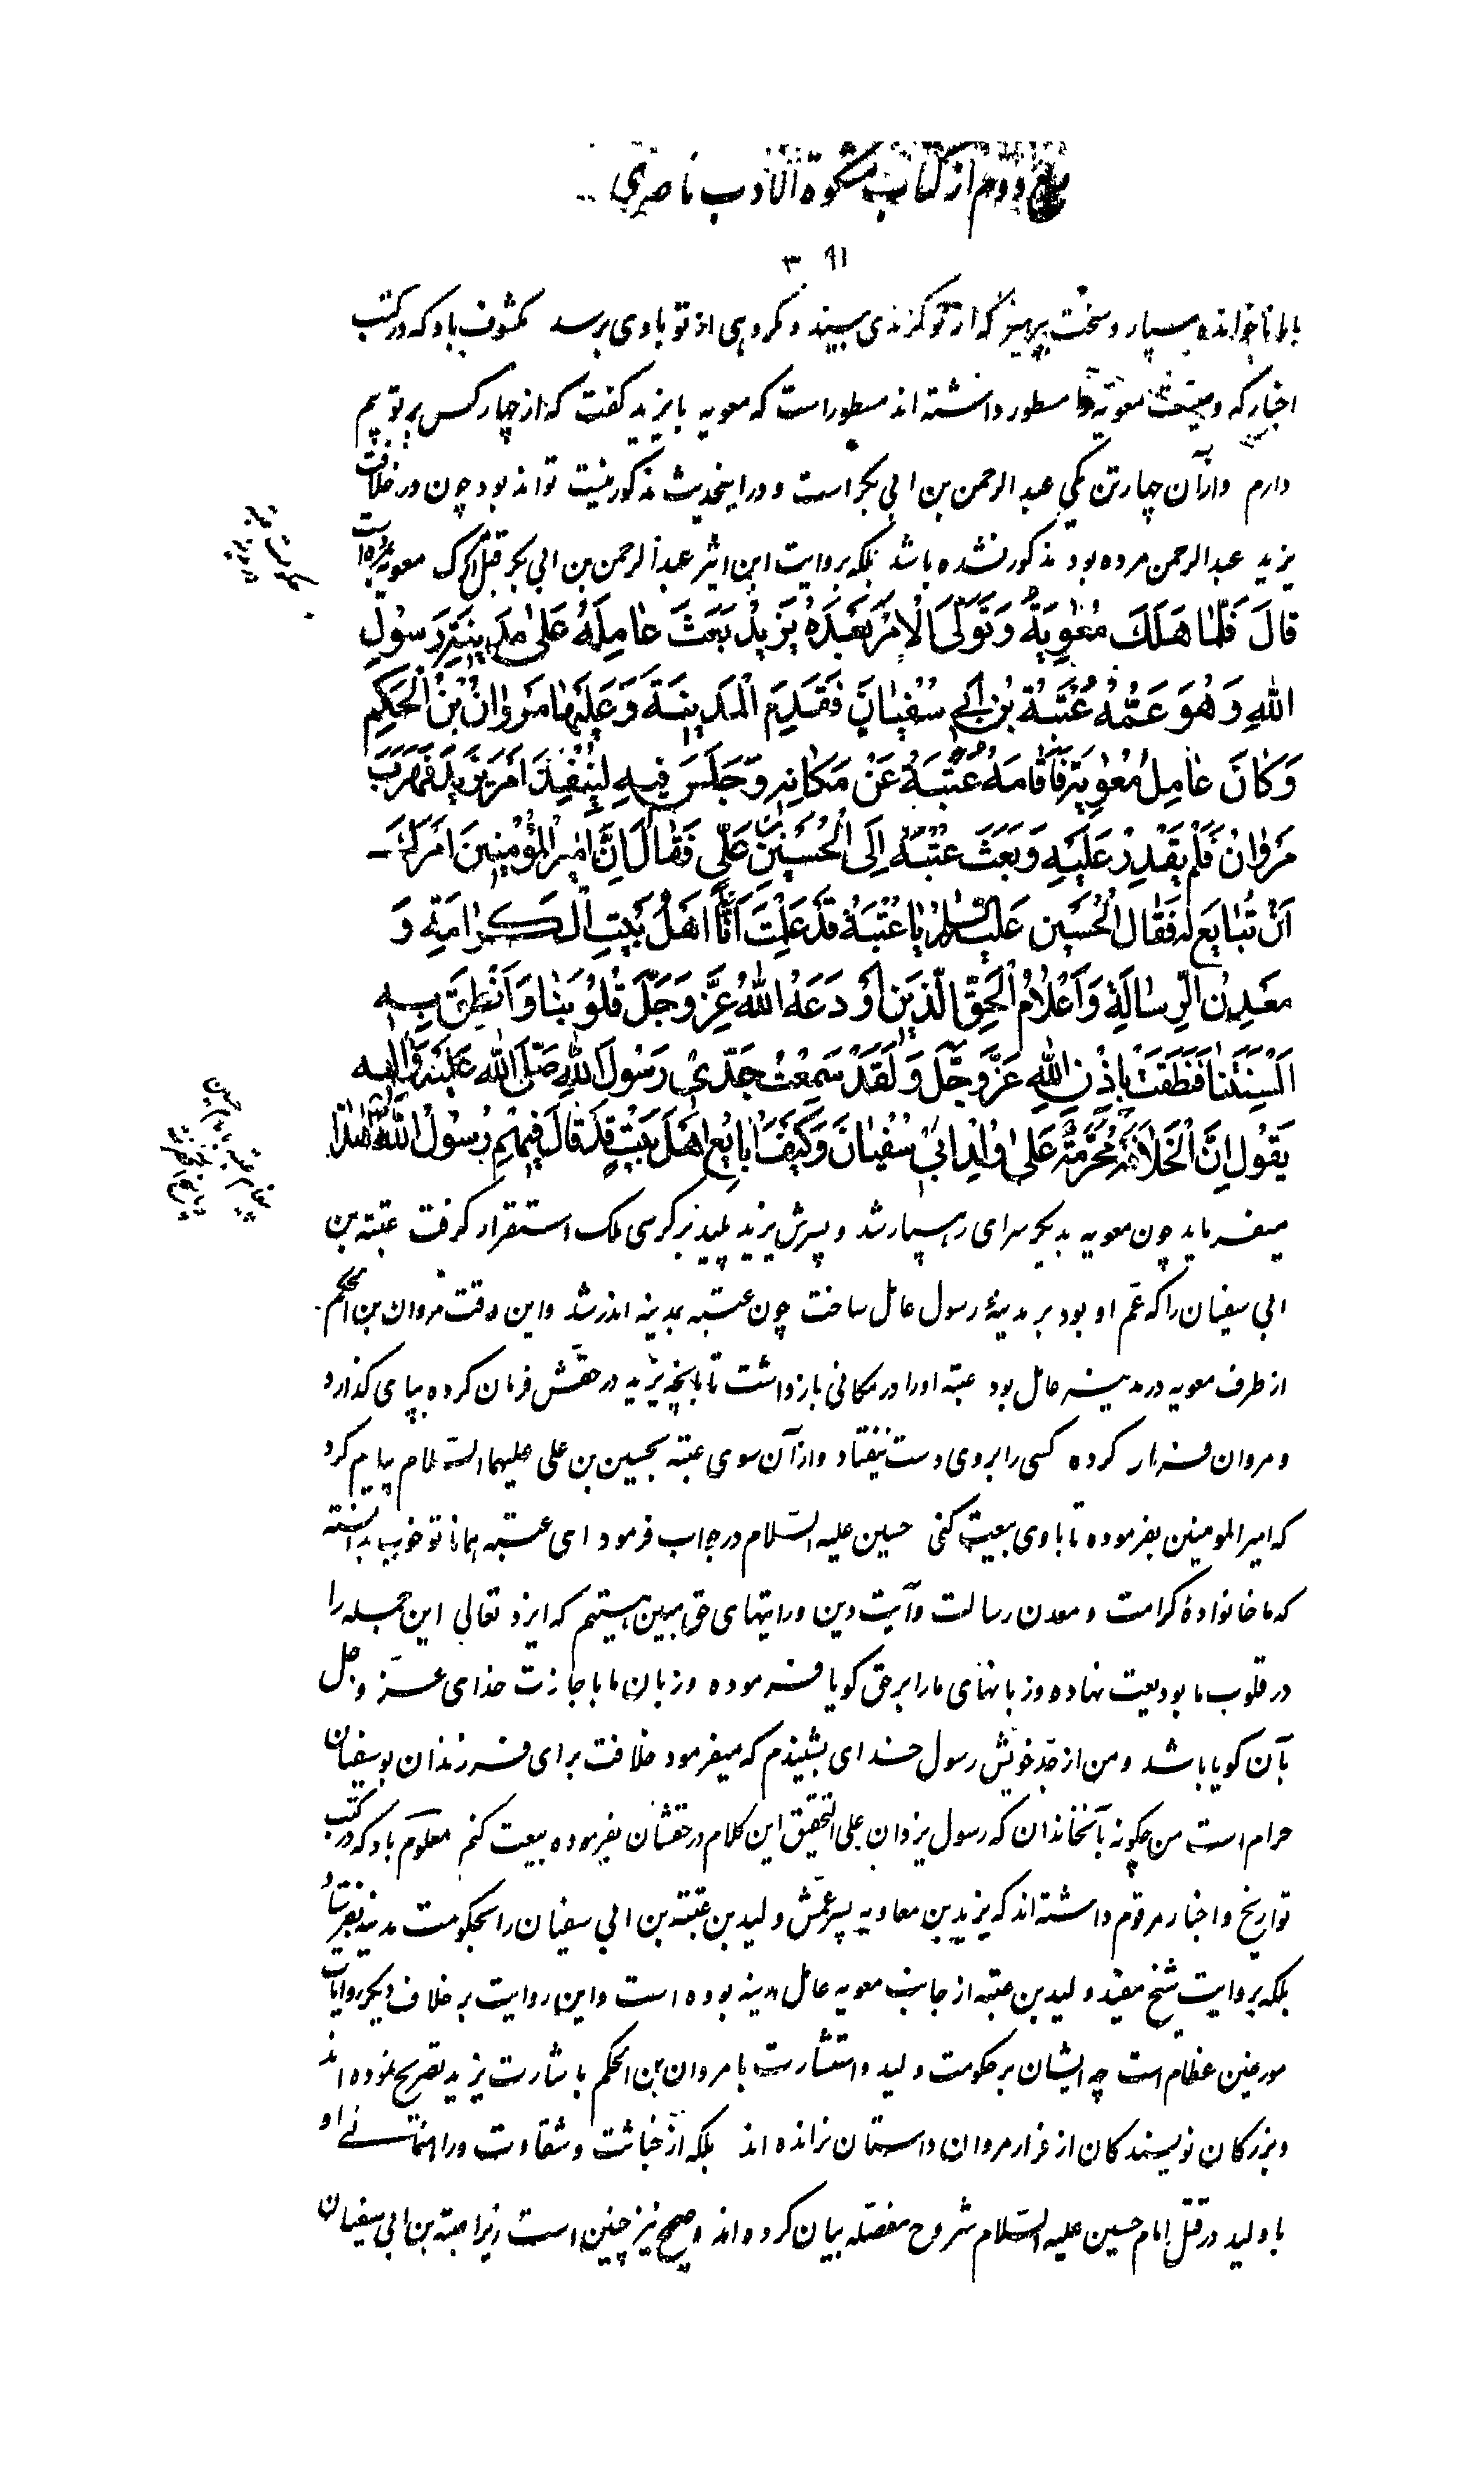 دوم از کتاب مشکوة الادب ناصری
۳۹۱
بسیار و سخت بپرهیز که از تو گزندی بیند و مکروهی از تو باوی برسد مکشوف باد که در کتب
اخبار که وصیت معویه را مسطور داشته اند مسطور است که معویه با یزید گفت که از چهار کس بر تو بیم
دارم و از آن چهار تن یکی عبد الرحمن بن ابی بکر است و در اینحدیث مذکور نیست تواند بود چون در خلافت
یزید عبد الرحمن مرده بود مذکور نشده باشد بلکه بروایت ابن اثیر عبد الرحمن بن ابی بکر قبل از مرک معویه بمرده است
قالَ فَلَمّا هَلَكَ مُعٰوِيَةُ وَتَوَلَّى الْاَمْرَ بَعْدَهُ يَزيدُ بَعَثَ عامِلَهُ عَلىٰ مَدينَةِ رَسُولِ
اللهِ وَهُوَ عَمُّهُ عُتْبَةُ بْنُ اَبي سُفْيانَ فَقَدِمَ الْمَدينَةَ وَعَلَيْها مَرْوانُ بْنُ الْحَكَمِ
وَكانَ عامِلَ مُعٰوِيَةَ فَاَقامَهُ عُتْبَةُ عَنْ مَكانِهِ وَجَلَسَ فيهِ لِيُنْفِذَ اَمْرَ يَزيدَ فَهَرَبَ
مَرْوانُ فَلَمْ يَقْدِرْ عَلَيْهِ وَبَعَثَ عُتْبَةُ اِلَى الْحُسَيْنِ بْنِ عَلِيٍّ فَقالَ اِنَّ اَميرَ الْمُؤْمِنينَ اَمَرَكَ
اَنْ تُبايِعَ لَهُ فَقالَ الْحُسَيْنِ عَلَيْهِ السَّلامُ يا عُتْبَةُ قَدْ عَلِمْتَ اَنّا اَهْلُ بَيْتِ الْكَرامَةِ وَ
مَعْدِنُ الرِّسالَةِ وَاَعْلامُ الْحَقِّ الَّذينَ اَوْدَعَهُ اللهُ عَزَّ وَجَلَّ قُلُوبَنا وَاَنْطَقَ بِهِ
اَلْسِنَتَنا فَنَطَقَتْ بِاِذْنِ اللهِ عَزَّ وَجَلَّ وَلَقَدْ سَمِعْتُ جَدّي رَسُولَ اللهِ صَلَّى اللهُ عَلَيْهِ وَآلِهِ
يَقُولُ اِنَّ الْخَلافَةَ مُحَرَّمَةٌ عَلىٰ وُلْدِ اَبي سُفْيانَ وَكَيْفَ اُبايِعُ اَهْلَ بَيْتٍ قَدْ قالَ فيهِمْ رَسُولُ اللهِ هٰذا
میفرماید چون معویه بدیگر سرای رهسپار شد و پسرش یزید پلید بر کرسی ملک استقرار گرفت عتبة بن
ابی سفیان را که عم او بود بر مدینهٔ رسول عامل ساخت چون عتبه بمدینه اندر شد و این وقت مروان بن الحکم
از طرف معویه در مدینه عامل بود عتبه او را در مکانی بازداشت تا بآنچه یزید در حقش فرمان کرده بپای گذارد
و مروان فرار کرده کسی را بروی دست نیفتاد و از آن سوی عتبه بحسین بن علی علیهما السلام پیام کرد
که امیر المومنین بفرموده تا با وی بیعت کنی حسین علیه السلام در جواب فرمود ای عتبه همانا تو خوب دانسته
که ما خانوادهٔ کرامت و معدن رسالت و آیت دین و رایتهای حق مبین هستیم که ایزد تعالی این جمله را
در قلوب ما بودیعت نهاده و زبانهای ما را بر حق گویا فرموده و زبان ما باجازت خدای عز و جل
بآن گویا باشد و من از جد خویش رسول خدای بشنیدم که میفرمود خلافت برای فرزندان بوسفیان
حرام است من چگونه بآنخاندان که رسول یزدان علی التحقیق این کلام در حقشان بفرموده بیعت کنم معلوم باد که در کتب
تواریخ و اخبار مرقوم داشته اند که یزید بن معاویه پسر عمش ولید بن عتبة بن ابی سفیان را بحکومت مدینه بفرستاد
بلکه بروایت شیخ مفید ولید بن عتبه از جانب معویه عامل مدینه بوده است و این روایت بر خلاف دیگر روایات
مورخین عظام است چه ایشان بر حکومت ولید و استشارت با مروان بن الحکم باشارت یزید تصریح نموده اند
و بزرگان نویسندگان از فرار مروان داستان نرانده اند بلکه از خباثت و شقاوت و راهنمائی او
با ولید در قتل امام حسین علیه السلام شروح مفصله بیان کرده اند و صحیح نیز چنین است زیرا عتبة بن ابی سفیان